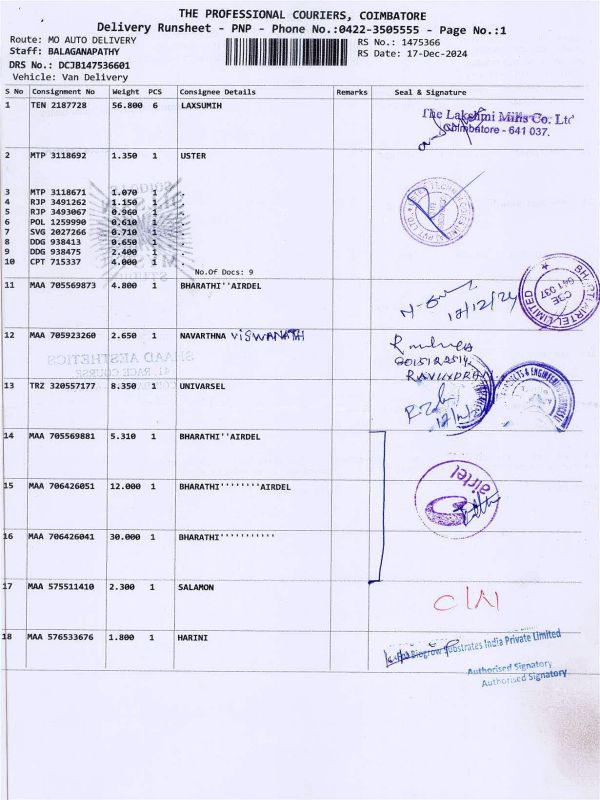 THE PROFESSIONAL COURIERS, COIMBATORE
Delivery Runsheet - PNP - Phone No.:0422-3505555 - Page No.:1
Route: MO AUTO DELIVERY
Staff: BALAGANAPATHY
DRS No.: DCJB147536601
Vehicle: Van Delivery
RS No.: 1475366
RS Date: 17-Dec-2024
S No Consignment No Weight PCS Consignee Details Remarks Seal & Signature
1 TEN 2187728 56.800 6 LAXSUMIH
The Lakshmi Mills Co. Ltd
Coimbatore - 641 037.
2 MTP 3118692 1.350 1 USTER
3 MTP 3118671 1.070 1 .
4 RJP 3491262 1.150 1 .
5 RJP 3493067 0.960 1 .
6 POL 1259990 0.610 1 .
7 SVG 2027266 0.710 1 .
8 DDG 938413 0.650 1 .
9 DDG 938475 2.400 1 .
10 CPT 715337 4.000 1 .
No.Of Docs: 9
11 MAA 705569873 4.800 1 BHARATHI''AIRDEL
17/12/24
BHARTI AIRTEL LIMITED
CBE
641 037
12 MAA 705923260 2.650 1 NAVARTHNA VISWANATH
RAVINDRAN
SHAAD AESTHETICS
41, RACE COURSE
13 TRZ 320557177 8.350 1 UNIVARSEL
14 MAA 705569881 5.310 1 BHARATHI''AIRDEL
15 MAA 706426051 12.000 1 BHARATHI''''''''AIRDEL
airtel
16 MAA 706426041 30.000 1 BHARATHI'''''''''''
17 MAA 575511410 2.300 1 SALAMON
18 MAA 576533676 1.800 1 HARINI
For Biogrow Substrates India Private Limited
Authorised Signatory
Authorised Signatory